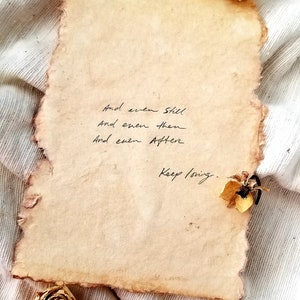 And even Still
And even then
And even After
Keep loving.